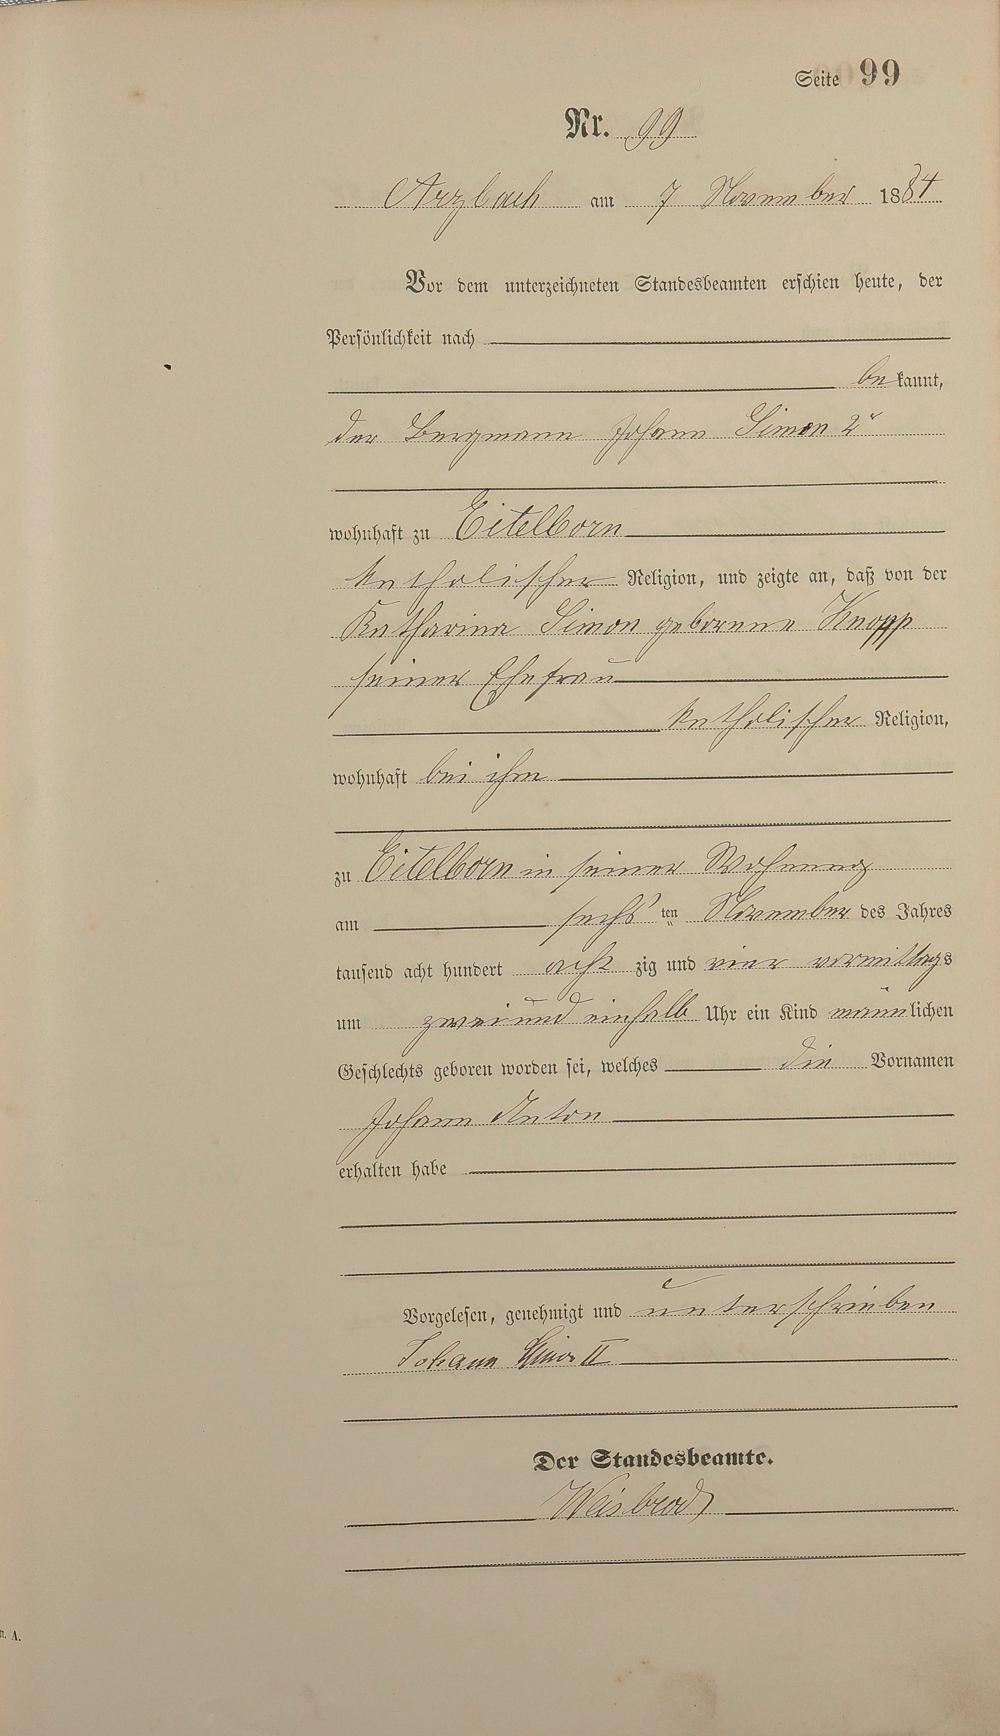 Seite 99
Nr. 99
Arzbach am 7 November 1884
Vor dem unterzeichneten Standesbeamten erschien heute, der
Persönlichkeit nach
bekannt,
der Bergmann Johann Simon 2r
wohnhaft zu Eitelborn
katholischer Religion, und zeigte an, daß von der
Katharina Simon geborene Knopp
seiner Ehefrau
katholischer Religion,
wohnhaft bei ihm
zu Eitelborn in seiner Wohnung
am sechsten November des Jahres
tausend acht hundert achtzig und vier vormittags
um zweiundeinhalb Uhr ein Kind männlichen
Geschlechts geboren worden sei, welches die Vornamen
Johann Anton
erhalten habe
Vorgelesen, genehmigt und unterschrieben
Johann Simon II
Der Standesbeamte.
Weisbrod
n. A.